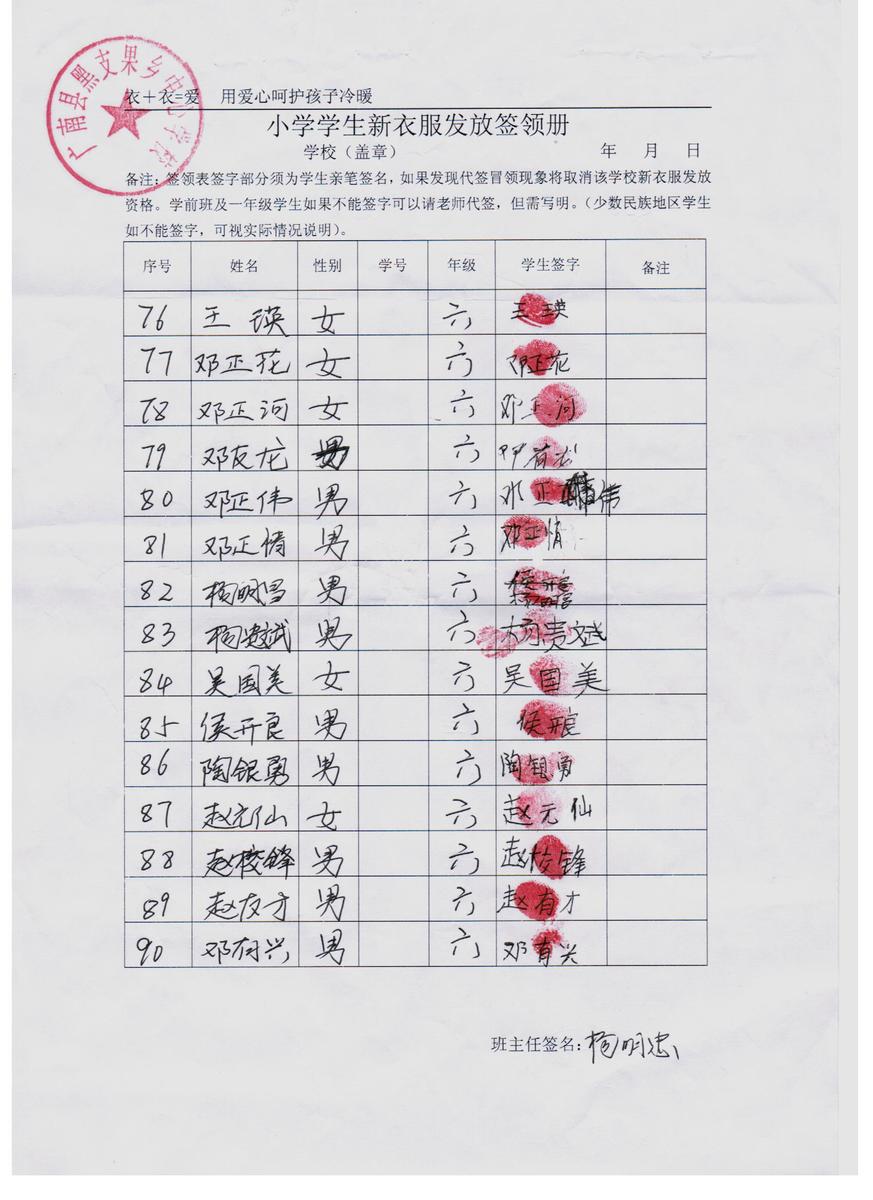 广南县黑支果乡中心学校
衣+衣=爱 用爱心呵护孩子冷暖
小学学生新衣服发放签领册
学校(盖章) 年 月 日
备注:签领表签字部分须为学生亲笔签名,如果发现代签冒领现象将取消该学校新衣服发放
资格。学前班及一年级学生如果不能签字可以请老师代签,但需写明。(少数民族地区学生
如不能签字,可视实际情况说明)。
序号 姓名 性别 学号 年级 学生签字 备注
76 王瑛 女 六 王瑛
77 邓正花 女 六 邓正花
78 邓正河 女 六 邓正河
79 邓友龙 男 六 邓有龙
80 邓正伟 男 六 邓正伟
81 邓正情 男 六 邓正情
82 杨明昌 男 六
83 杨贵斌 男 六 杨贵斌
84 吴国美 女 六 吴国美
85 侯开良 男 六 侯开良
86 陶银勇 男 六 陶银勇
87 赵元仙 女 六 赵元仙
88 赵校锋 男 六 赵校锋
89 赵友才 男 六 赵有才
90 邓有兴 男 六 邓有兴
班主任签名:杨明忠